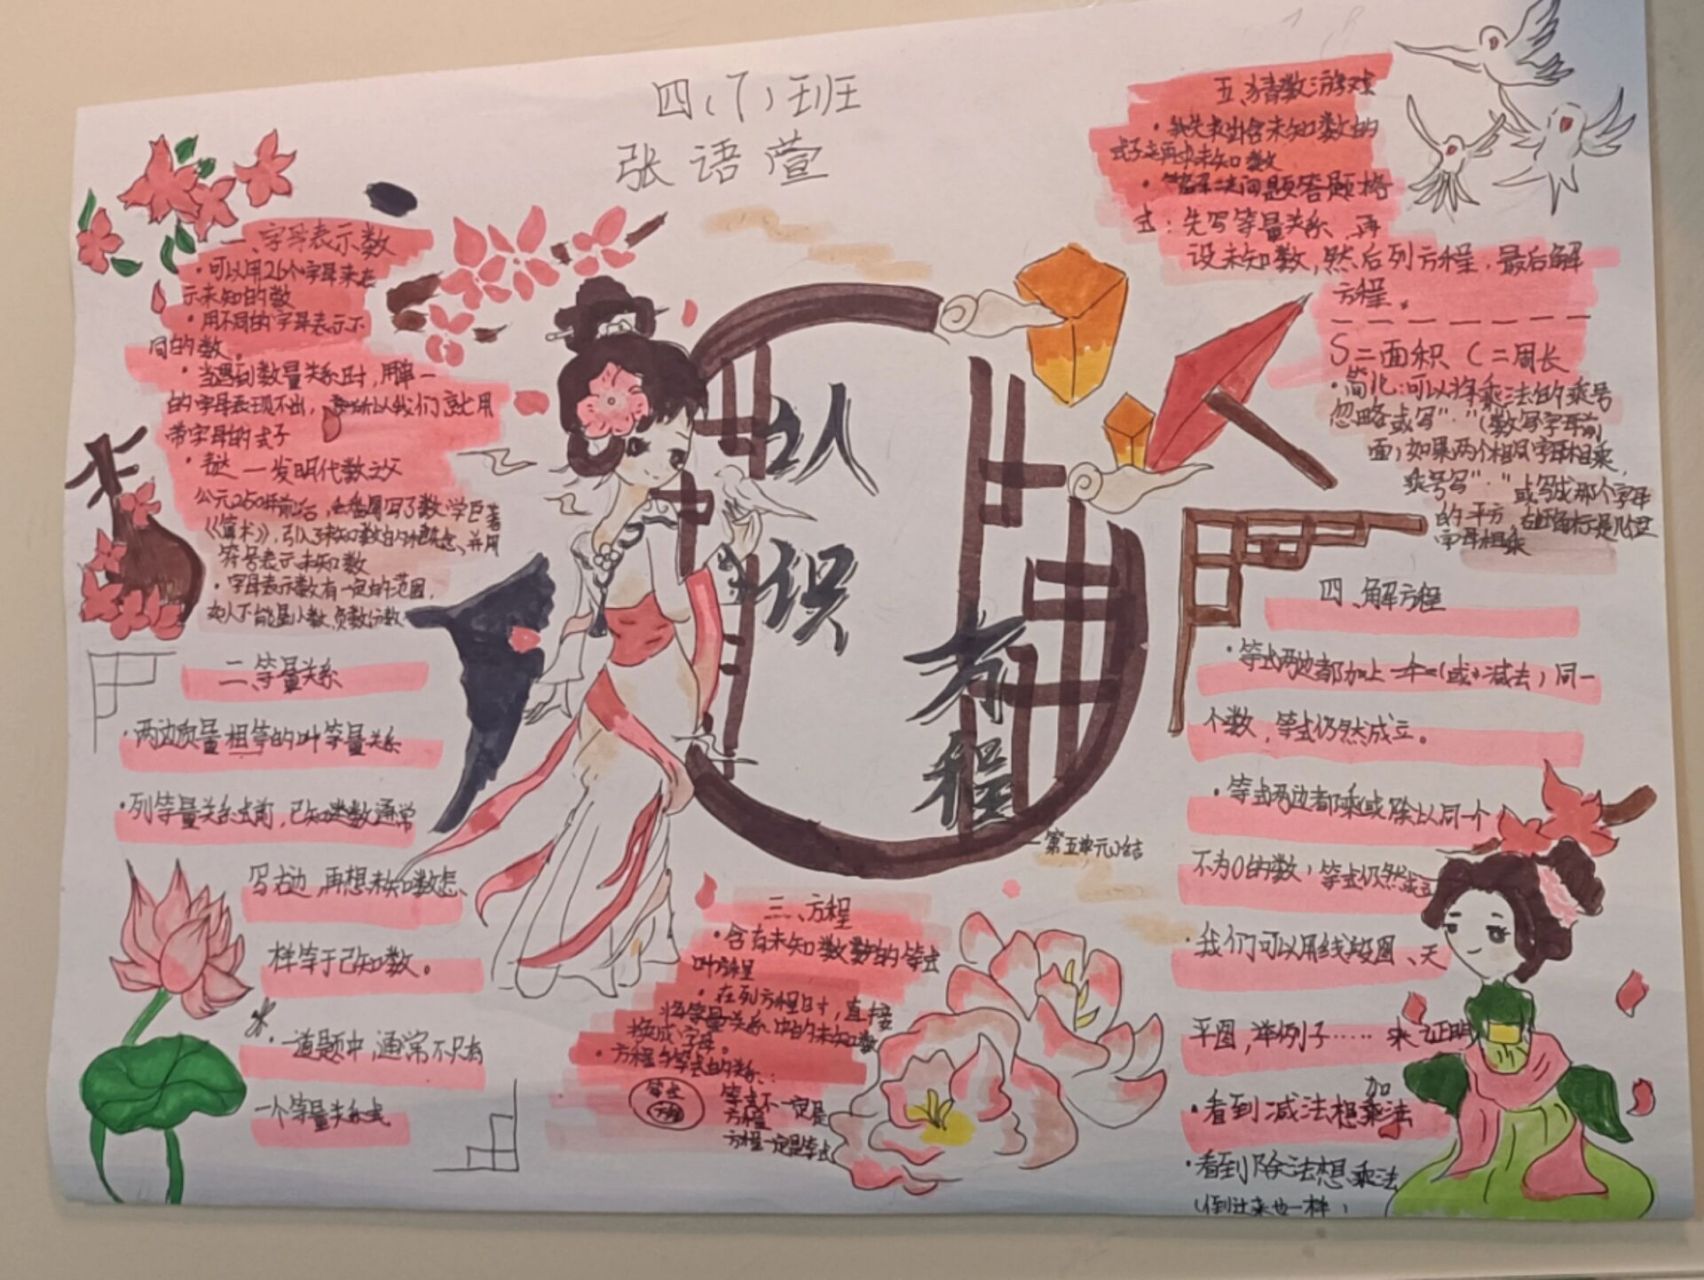 四(7)班
张语萱
认识
方程
—第五单元小结
一、字母表示数
·可以用26个字母来表
示未知的数
·用不同的字母表示不
同的数。
·当遇到数量关系时,用单一
的字母表现不出,所以我们就用
带字母的式子
一发明代数之父
《算术》,引入未知数的概念,并用
符号表示未知数
·字母表示数有一定的范围,
如人不能是小数、负数、分数
二、等量关系
·两边质量相等的叫等量关系
·列等量关系式前,已知数通常
写右边,再想未知数怎
样等于已知数。
·一道题中,通常不只有
一个等量关系式
三、方程
·含有未知数的等式
叫方程
·在列方程时,直接
将等量关系中的未知数
换成字母。
·方程与等式的关系:
方程
等式不一定是
方程
方程一定是等式
四、解方程
·等式两边都加上(或减去)同一
个数,等式仍然成立。
·等式两边都乘或除以同一个
不为0的数,等式仍然成立
·我们可以用线段图、天
平图,举例子……来证明
·看到减法想加法
·看到除法想乘法
(倒过来也一样)
五、猜数游戏
·先求出含未知数的
式子,再求未知数
·解决问题答题格
式:先写等量关系,再
设未知数,然后列方程,最后解
方程。
S=面积 C=周长
·简化:可以将乘法的乘号
忽略或写"·"(数写字母前
面),如果两个相同字母相乘,
乘号写"·"或写成那个字母
的平方,右上角标是几位
字母相乘